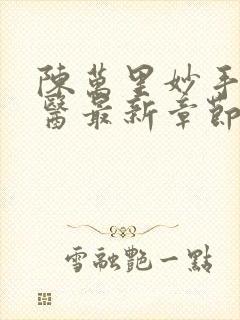 陳萬里妙手
醫最新章節
雪融艷一點